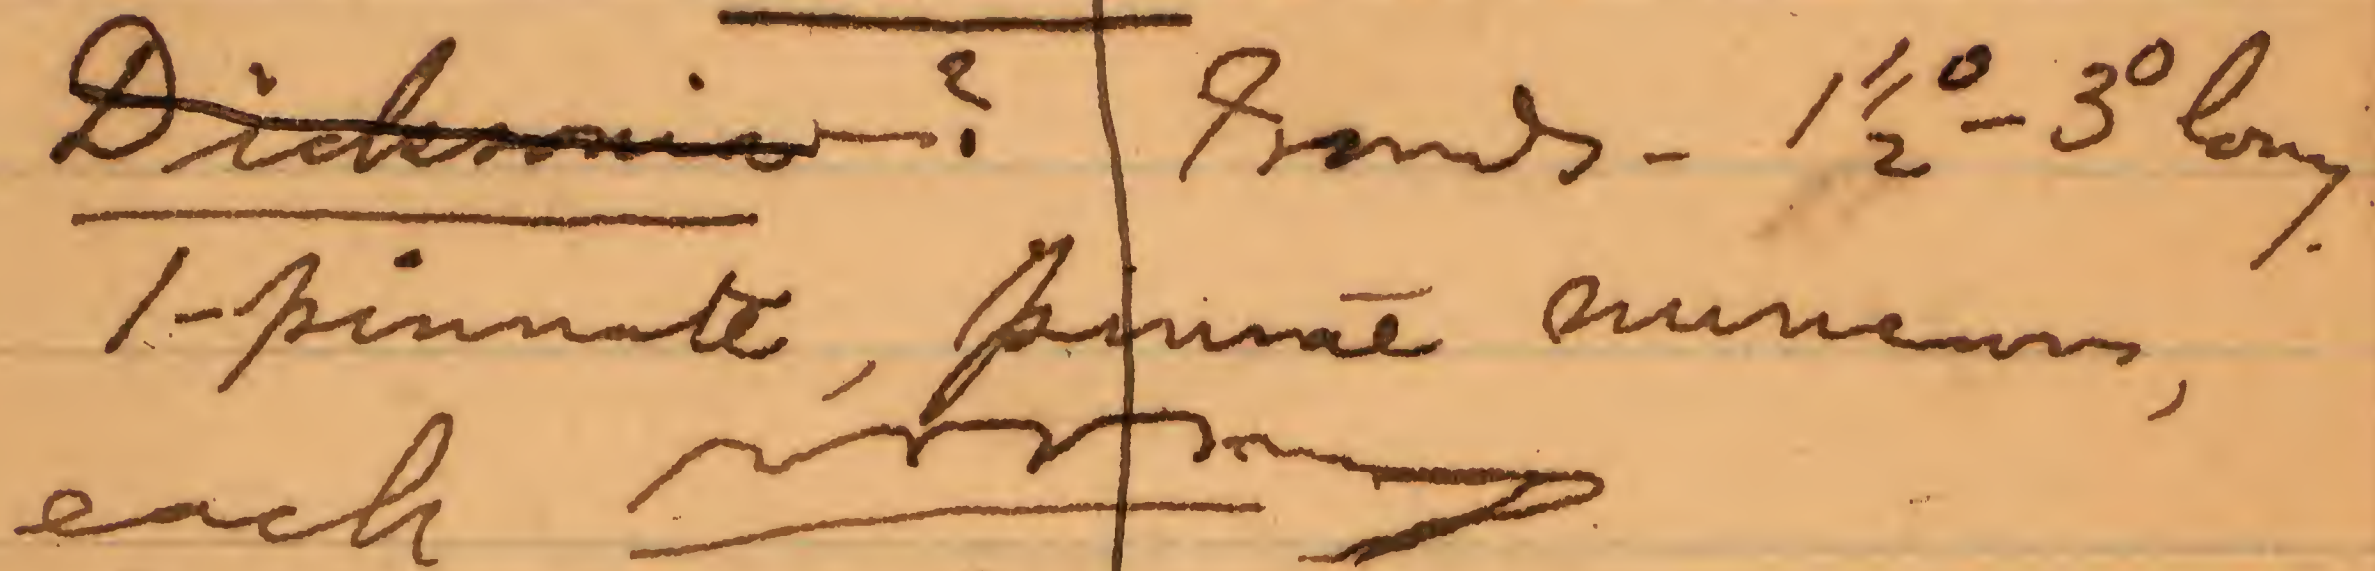 Dicksonia—? Fronds - 1½° - 3° long.
1-pinnate, pinnae numerous,
each